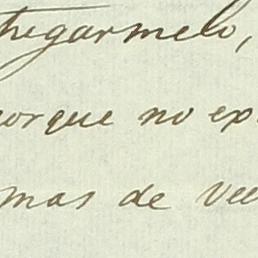 tregarmelo,
porque no ex
mas de vei